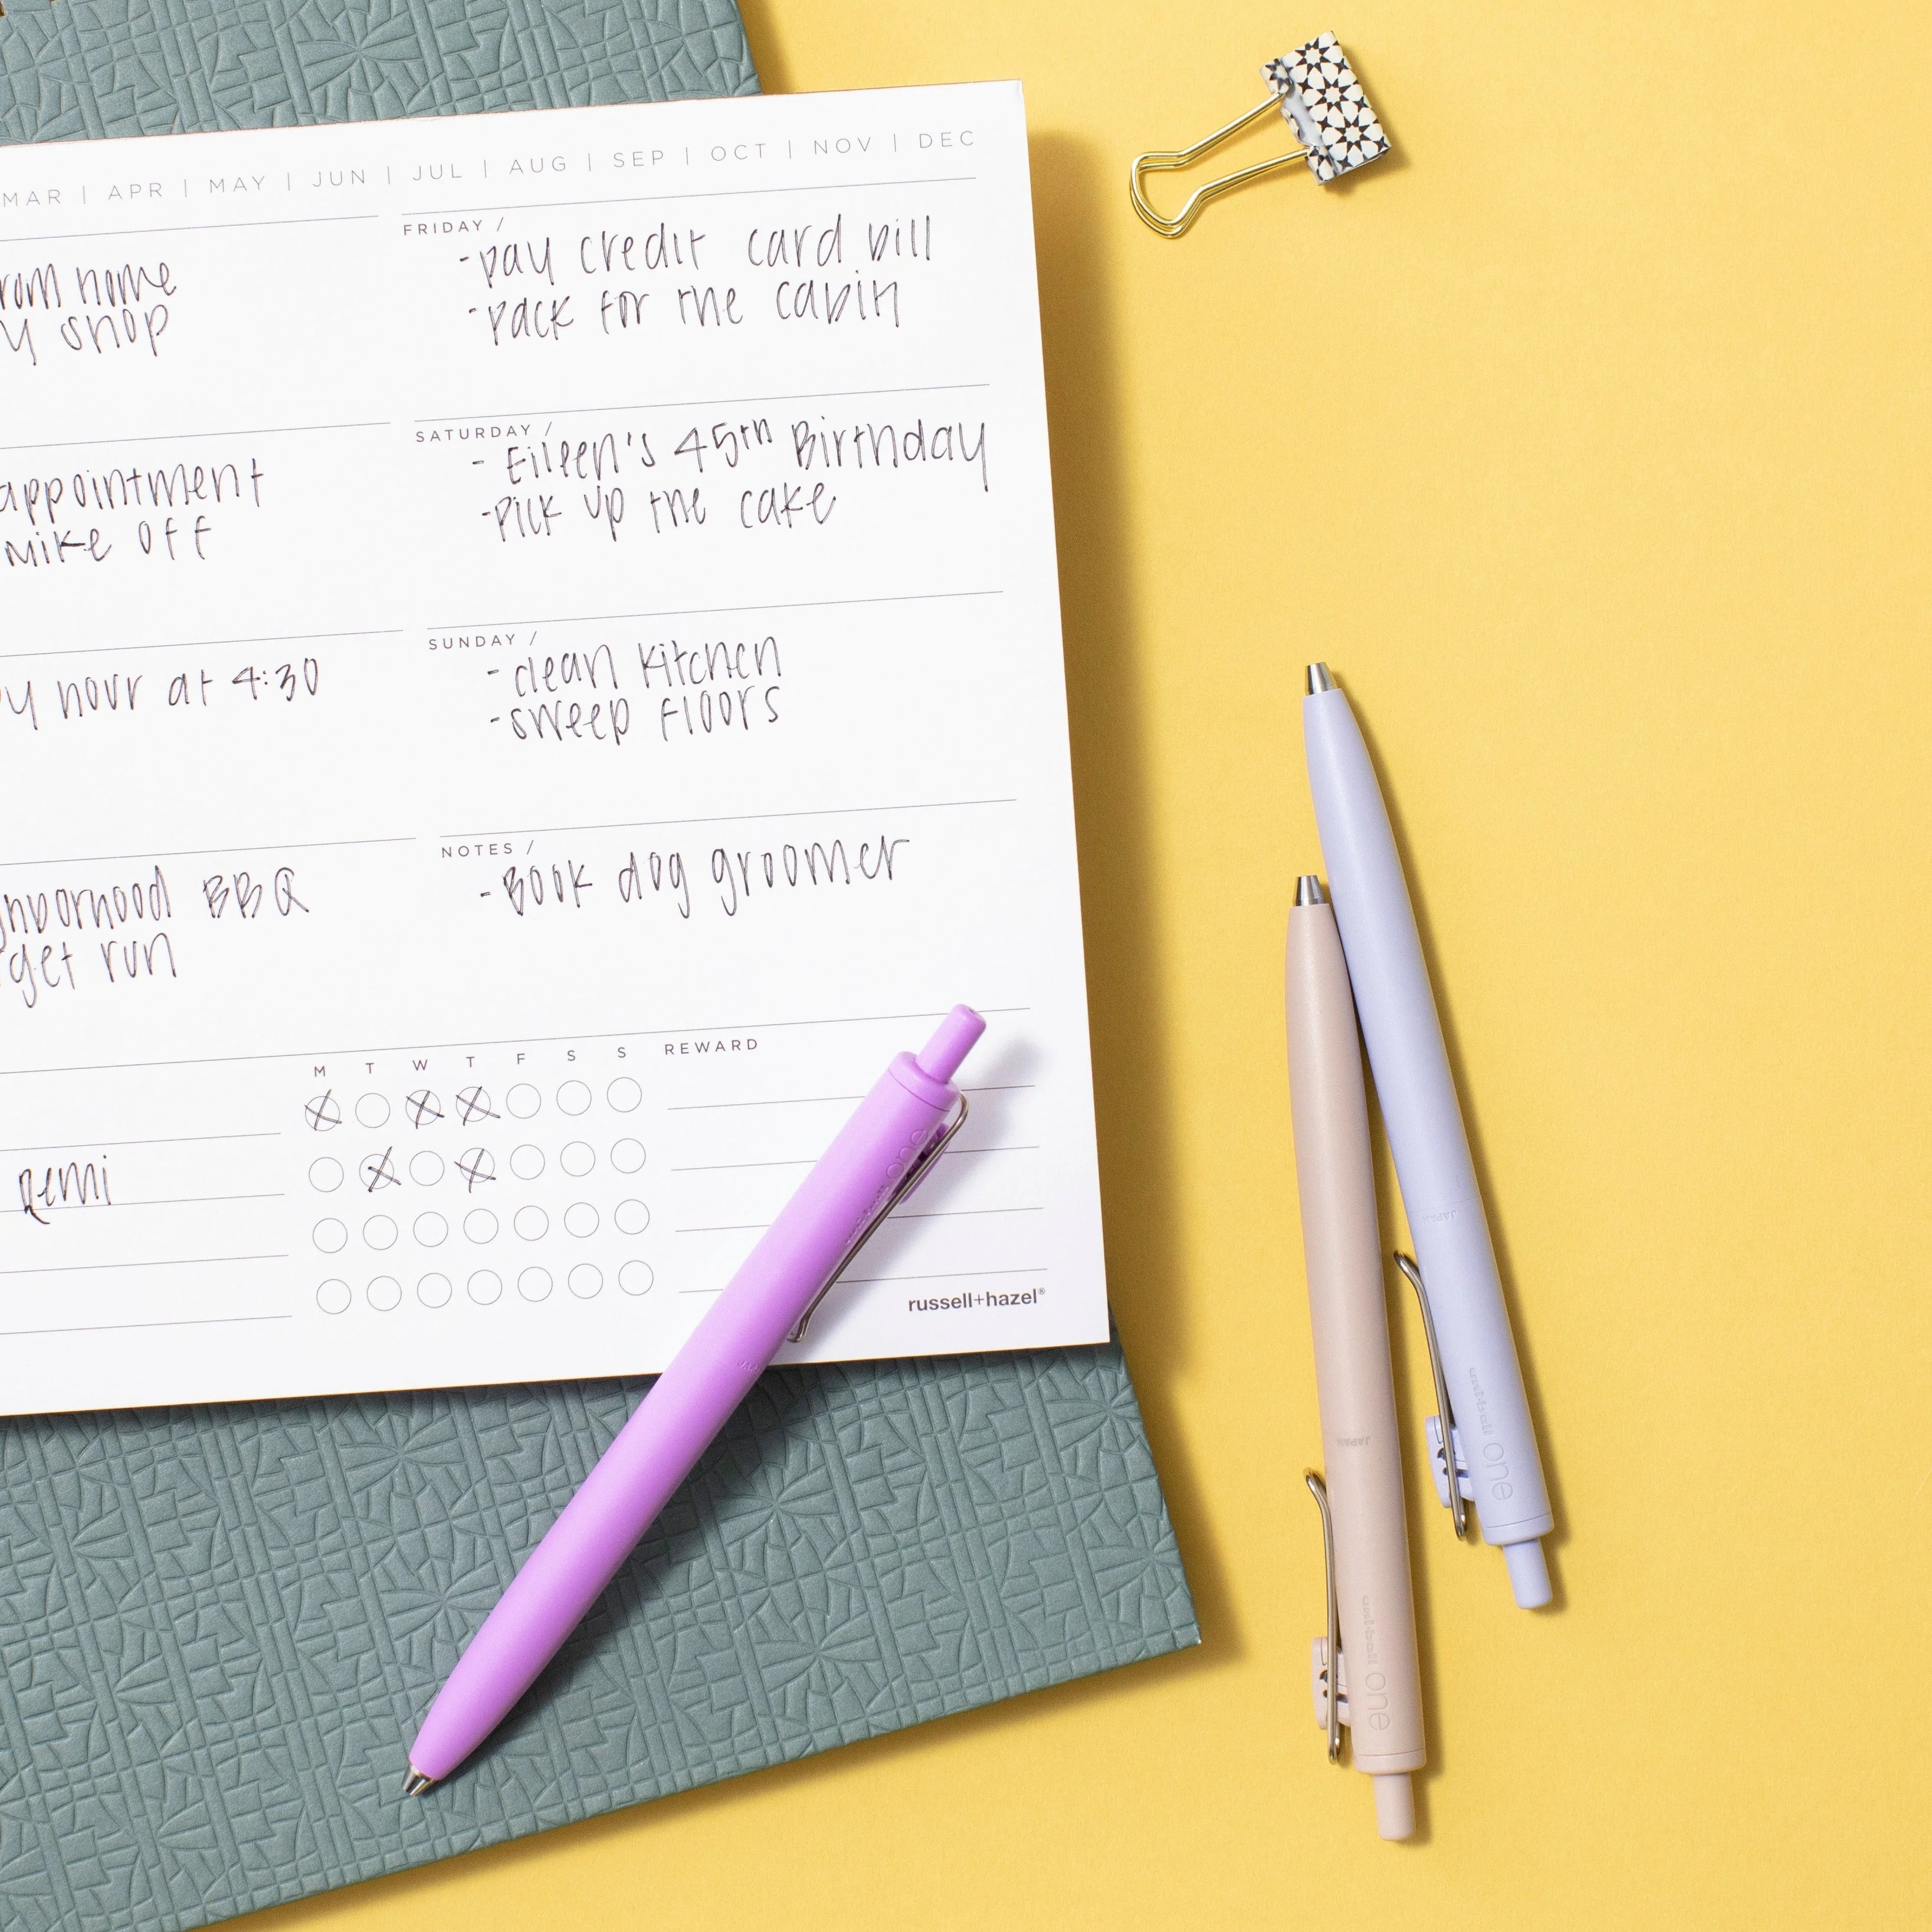 MAR | APR | MAY | JUN | JUL | AUG | SEP | OCT | NOV | DEC
rom home
y shop
appointment
mike off
y hour at 4:30
ghborhood BBQ
get run
FRIDAY /
-pay credit card bill
-pack for the cabin
SATURDAY /
- Eileen's 45th Birthday
-Pick up the cake
SUNDAY /
- clean kitchen
-sweep floors
NOTES /
-Book dog groomer
M T W T F S S
REWARD
Remi
russell+hazel®
one
JAPAN
uni-ball one
JAPAN
uni-ball one